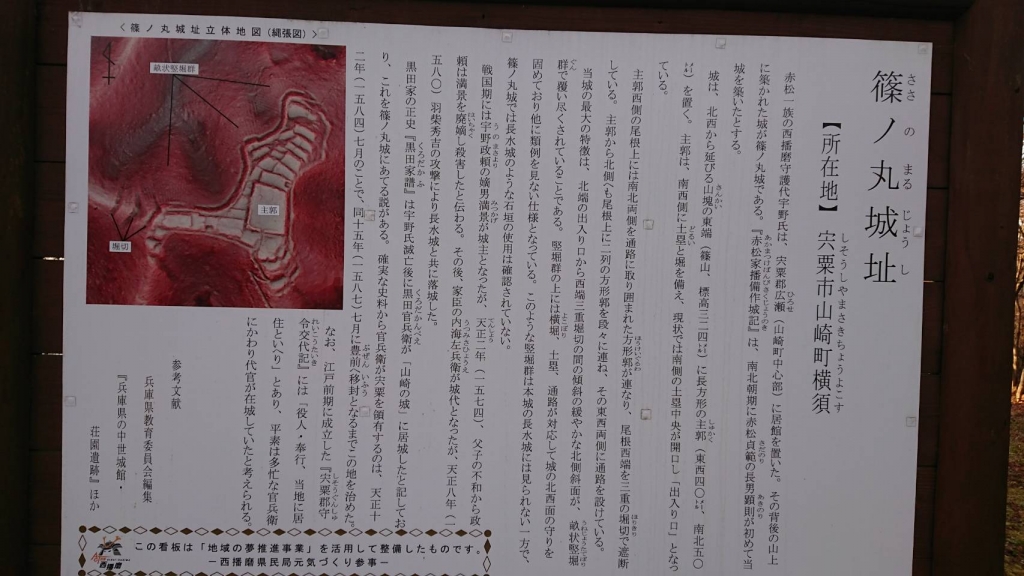 篠ノ丸城址
ささ の まる じょう し
【所在地】 宍粟市山崎町横須
しそうしやまさきちょうよこす
赤松一族の西播磨守護代宇野氏は、宍粟郡広瀬(山崎町中心部)に居館を置いた。その背後の山上
に築かれた城が篠ノ丸城である。『赤松家播備作城記』は、南北朝期に赤松貞範の長男顕則が初めて当
城を築いたとする。
城は、北西から延びる山塊の東端(篠山、標高三二四㍍)に長方形の主郭(東西四〇㍍、南北五〇
㍍)を置く。主郭は、南西側に土塁と堀を備え、現状では南側の土塁中央が開口し「出入り口」となっ
ている。
主郭西側の尾根上には南北両側を通路に取り囲まれた方形郭が連なり、尾根西端を三重の堀切で遮断
している。主郭から北側へも尾根上に二列の方形郭を段々に連ね、その東西両側に通路を設けている。
当城の最大の特徴は、北端の出入り口から西端三重堀切の間の傾斜の緩やかな北側斜面が、畝状竪堀
群で覆い尽くされていることである。竪堀群の上には横堀、土塁、通路が対応して城の北西面の守りを
固めており他に類例を見ない仕様となっている。このような竪堀群は本城の長水城には見られない一方で、
篠ノ丸城では長水城のような石垣の使用は確認されていない。
戦国期には宇野政頼の嫡男満景が城主となったが、天正二年(一五七四)、父子の不和から政
頼は満景を廃嫡し殺害したと伝わる。その後、家臣の内海左兵衛が城代となったが、天正八年(一
五八〇)羽柴秀吉の攻撃により長水城と共に落城した。
黒田家の正史『黒田家譜』は宇野氏滅亡後に黒田官兵衛が「山崎の城」に居城したと記してお
り、これを篠ノ丸城にあてる説がある。確実な史料から官兵衛が宍粟を領有するのは、天正十
二年(一五八四)七月のことで、同十五年(一五八七)七月に豊前へ移封となるまでこの地を治めた。
なお、江戸前期に成立した『宍粟郡守
令交代記』には「役人・奉行、当地に居
住といへり」とあり、平素は多忙な官兵衛
にかわり代官が在城していたと考えられる。
参考文献
兵庫県教育委員会編集
『兵庫県の中世城館・
荘園遺跡』ほか
<篠ノ丸城址立体地図(縄張図)>
畝状竪堀群
主郭
堀切
この看板は「地域の夢推進事業」を活用して整備したものです。
ー西播磨県民局元気づくり参事ー
西播磨